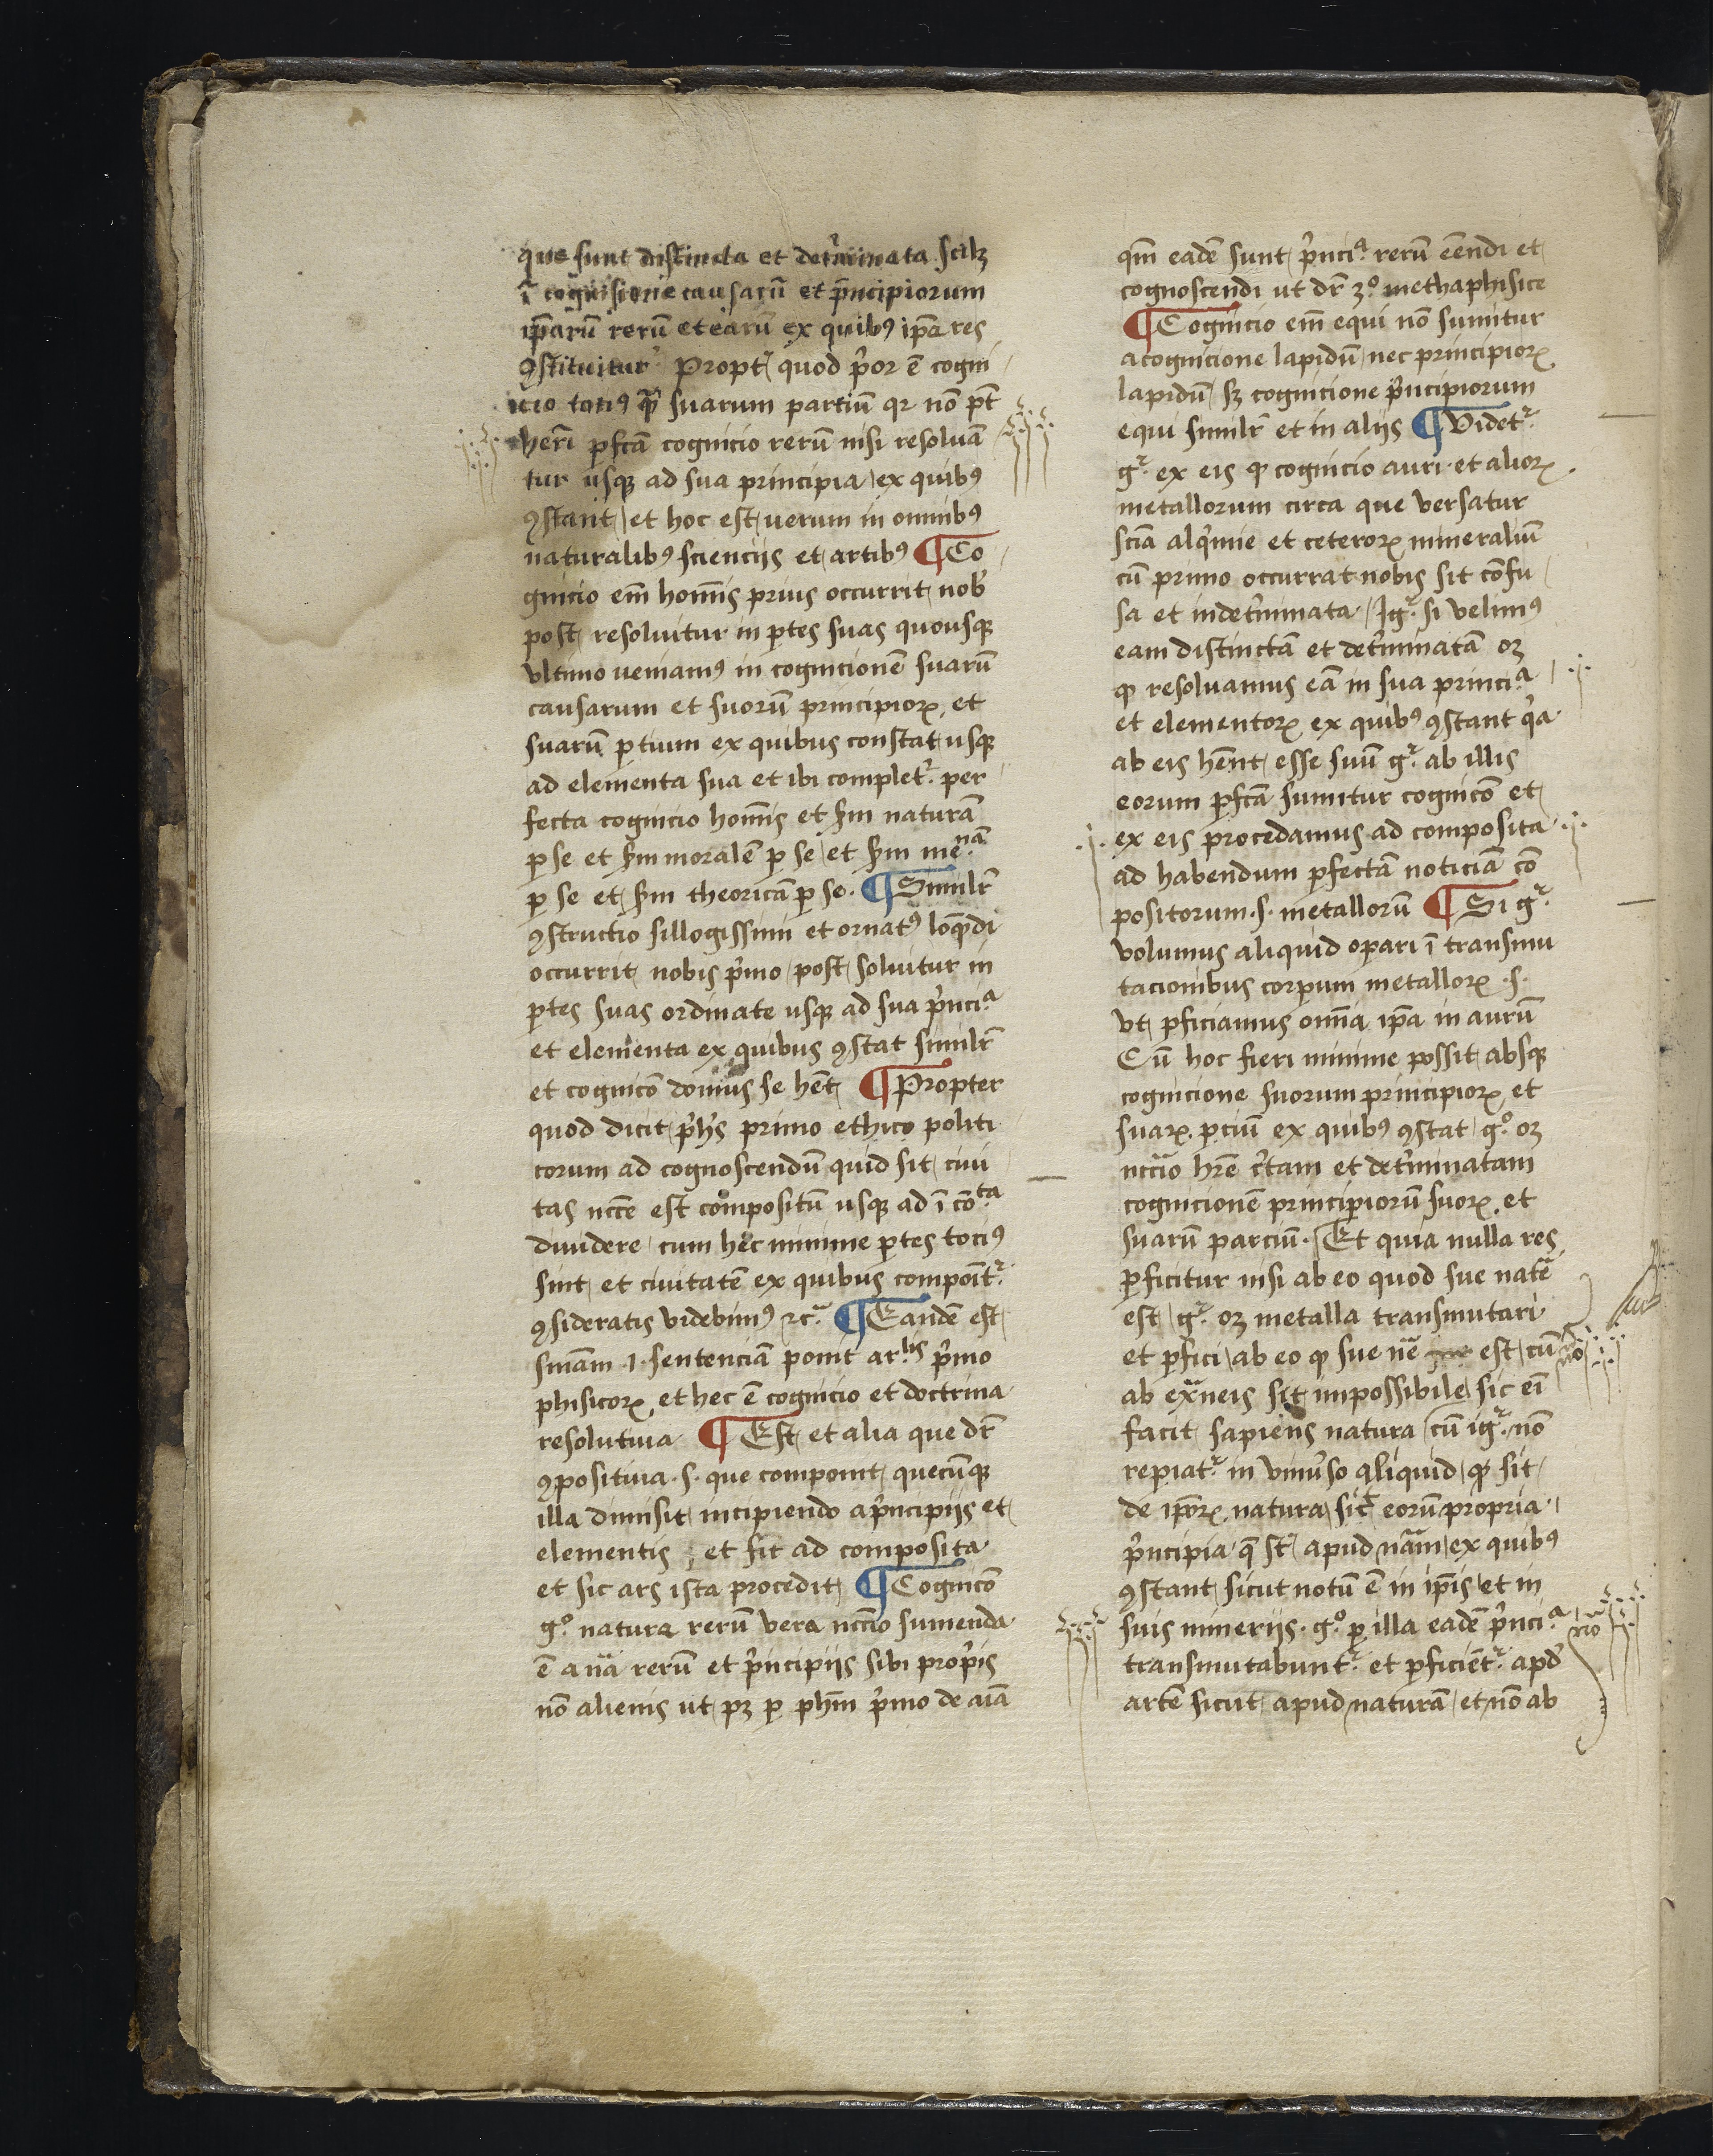 que sunt distincta et det̉minata scilꝫ
ī cognisione causarū et p̄ncipiorum
ip̄arū rerū et earū ex quibꝰ ip̄a res
ꝯstituitur Propt̉ quod p̉or ē cogni
icio totiꝰ qᷓ suarum partiū qꝛ nō pt̄
heri ꝑfcā cognicio rerū nisi resoluā
tur usqꝫ ad sua principia ex quibꝰ
ꝯstant et hoc est uerum in omnibꝰ
naturalibꝰ scienciis et artibꝰ ¶ Co
gnicio em̄ hoīs prius occurrit nob̉
post resoluitur in ꝑtes suas quousqꝫ
vltimo ueniamꝰ in cognicionē suarū
causarum et suorū principioꝝ et
suarū ꝑtium ex quibus constat usqꝫ
ad elementa sua et ibi complet̉ per
fecta cognicio hoīs et ẜm naturā
ꝑ se et ẜm moralē ꝑ se et ẜm me.nā
ꝑ se et ẜm theoricā ꝑ se. ¶ Similr̄
ꝯstructio sillogissimi et ornatꝰ loq̄ndi
occurrit nobis p̉mo post soluitur in
ꝑtes suas ordinate usqꝫ ad sua p̉nci.ª
et elementa ex quibus ꝯstat similr̄
et cognicō domus se hēt ¶ Propter
quod dicit ph̉s primo ethico politi
corum ad cognoscendū quid sit ciui
tas nccē est compositū usqꝫ ad ī cō.ta
diuidere cum hec minime ꝑtes totiꝰ
sint et ciuitatē ex quibus componit̉
ꝯsideratis videbimꝰ ⁊c̉ ¶ Eandē est
sniam .1. sentenciā ponit ar.lis p̉mo
phisicoꝝ et hec ē cognicio et doctrina
resolutiua ¶ Est et alia que dr̄
ꝯpositiua .s. que componit quecūqꝫ
illa diuisit incipiendo a p̉ncipiis et
elementis et sit ad composita
et sic ars ista procedit ¶ Cognicō
g̊ natura rerū vera nccīo sumenda
ē a nā rerū et p̉ncipiis sibi prop̉is
nō alienis ut pꝫ ꝑ phm̄ p̉mo de aīa
qm̄ eadē sunt p̉nci.ª rerū eēndi et
cognoscendi ut dr̄ 3º methaphisice
¶ Cognicio em̄ equi nō sumitur
a cognicione lapidū nec principioꝝ
lapidū sꝫ cognicione p̉ncipiorum
equi similr̄ et in aliis ¶ Videt̉
g̉ ex eis ꝙ cognicio auri et alioꝝ
metallorum circa que versatur
scīa alq̉mie et ceteroꝝ mineraliū
cū primo occurrat nobis sit cōfu
sa et indet̉minata Ig̉ si velimꝰ
eam distinctā et det̉minatā oꝫ
ꝙ resoluamus eā in sua princi.ª
et elementoꝝ ex quibꝰ ꝯstant q̉a
ab eis hēnt esse suū g̉ ab illis
eorum ꝑfcā sumitur cognicō et
ex eis procedamus ad composita
ad habendum ꝑfectā noticiā cō
positorum .s. metallorū ¶ Si g̉
volumus aliquid operari ī transmu
tacionibus corporum metalloꝝ .s.
vt ꝑficiamus omīa ip̄a in aurū
Cū hoc fieri minime possit absqꝫ
cognicione suorum principioꝝ et
suaꝝ ꝑciū ex quibꝰ ꝯstat g̊ oꝫ
nccīo hr̄e c̉tam et det̉minatam
cognicionē principiorū suoꝝ et
suarū parciū. Et quia nulla res
ꝑficitur nisi ab eo quod sue natē
est g̉ oꝫ metalla transmutari
et ꝑfici ab eo ꝙ sue nē est cū
no
ab exᷓneis sit impossibile sic eī
facit sapiens natura cū ig̉ nō
repiat̉ in vniu̓so aliquid ꝙ sit
de ip̄oꝝ natura sic̄ eorū propria
p̉ncipia q̄ st̄ apud nām ex quibꝰ
ꝯstant sicut notū ē in ip̄is et in
suis mineriis. g̊ ꝑ illa eadē p̉nci.ª
no
transmutabunt̉ et ꝑficiēt̉ apd̉
artē sicut apud naturā et nō ab